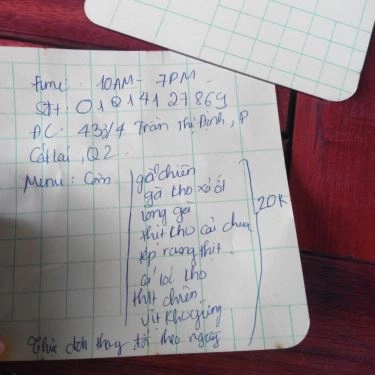 Time: 10AM - 7PM
SĐT: 01214127869
ĐC: 433/4 Trần Thị Định, P
Cát Lái, Q2
Menu: Cơm gà chiên
gà kho xả ớt
lòng gà
thịt kho cải chua
tép rang thịt
cá lóc kho
thịt chiên
vịt kho gừng
20K
Thực đơn thay đổi theo ngày